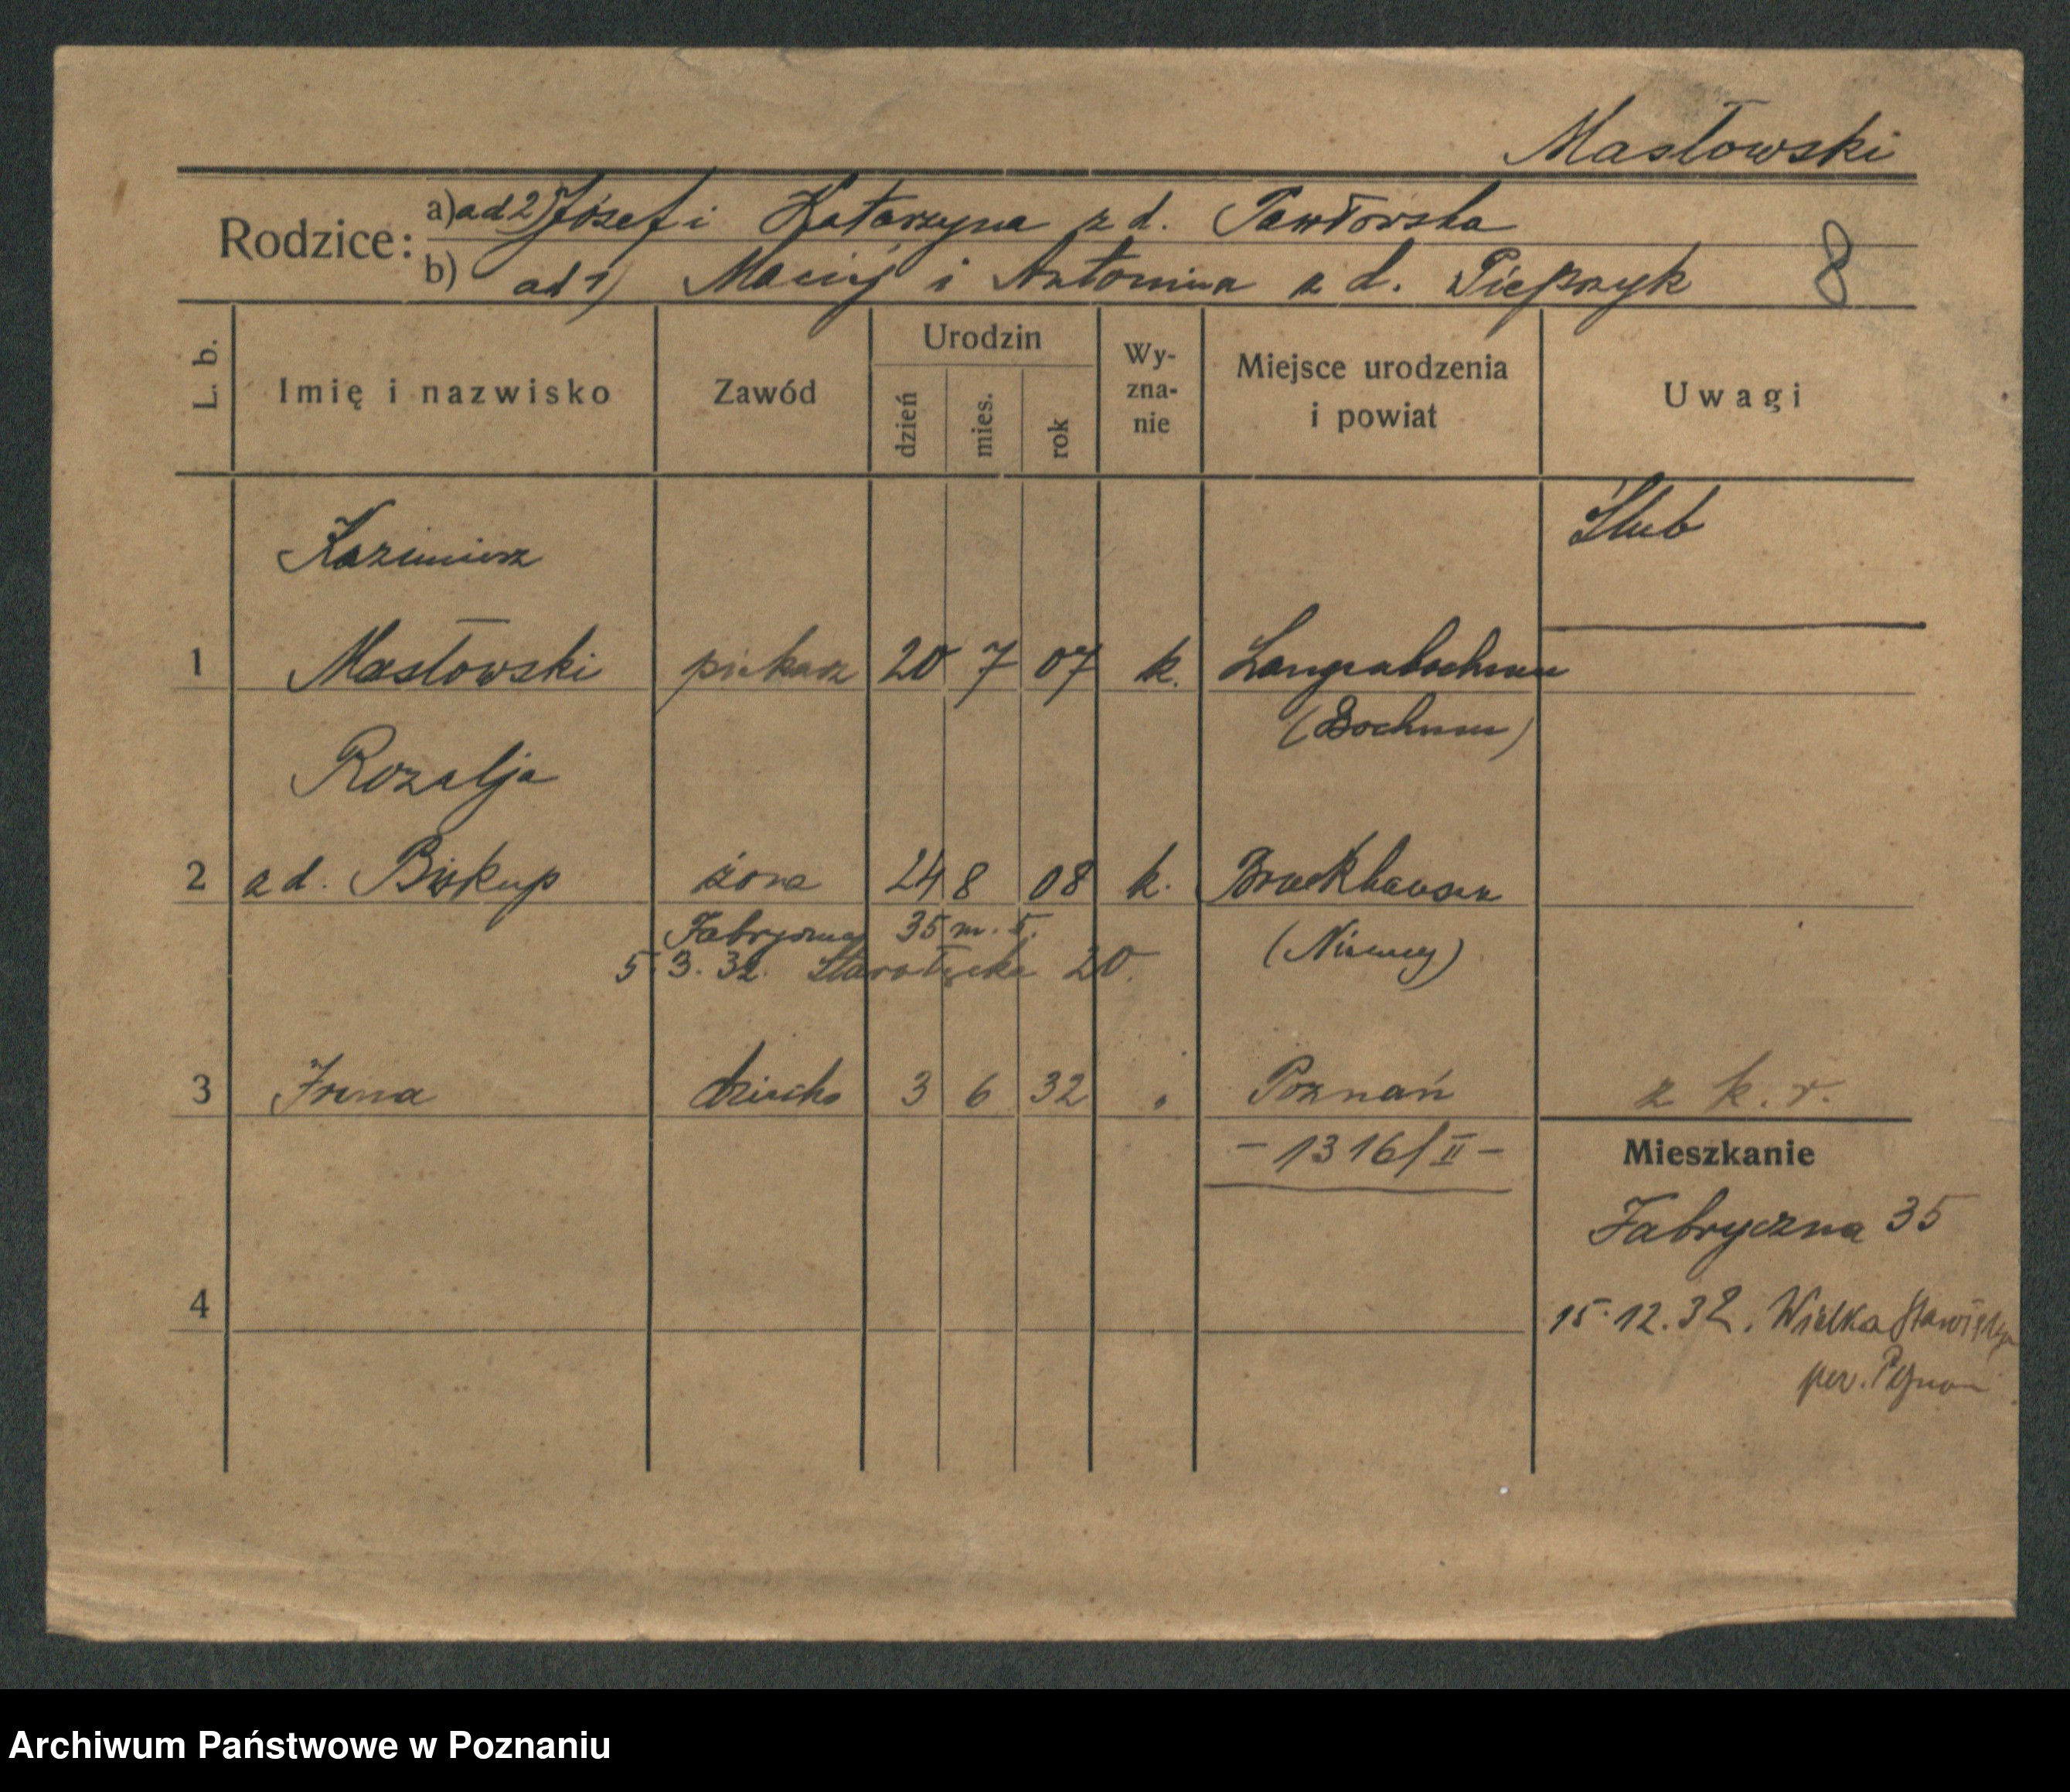 Masłowski
Rodzice: a) ad 2) Józef i Katarzyna z d. Pawłowska
b) ad 1) Maciej i Antonina z d. Pieprzyk
8
L. b.
Imię i nazwisko
Zawód
Urodzin
dzień
mies.
rok
Wy-
zna-
nie
Miejsce urodzenia
i powiat
Uwagi
Ślub
Kazimierz
1 Masłowski piekarz 20 7 07 k. Langenbochum
(Bochum)
Rozalja
2 z d. Biskup żona 24 8 08 k. Brockhausen
Fabryczna 35 m. 5. (Niemcy)
5.3.32. Starołęcka 20.
3 Irena dziecko 3 6 32 " Poznań z k. r.
- 1316/II -
Mieszkanie
Fabryczna 35
4
15.12.32. Wielka
pow.
Archiwum Państwowe w Poznaniu